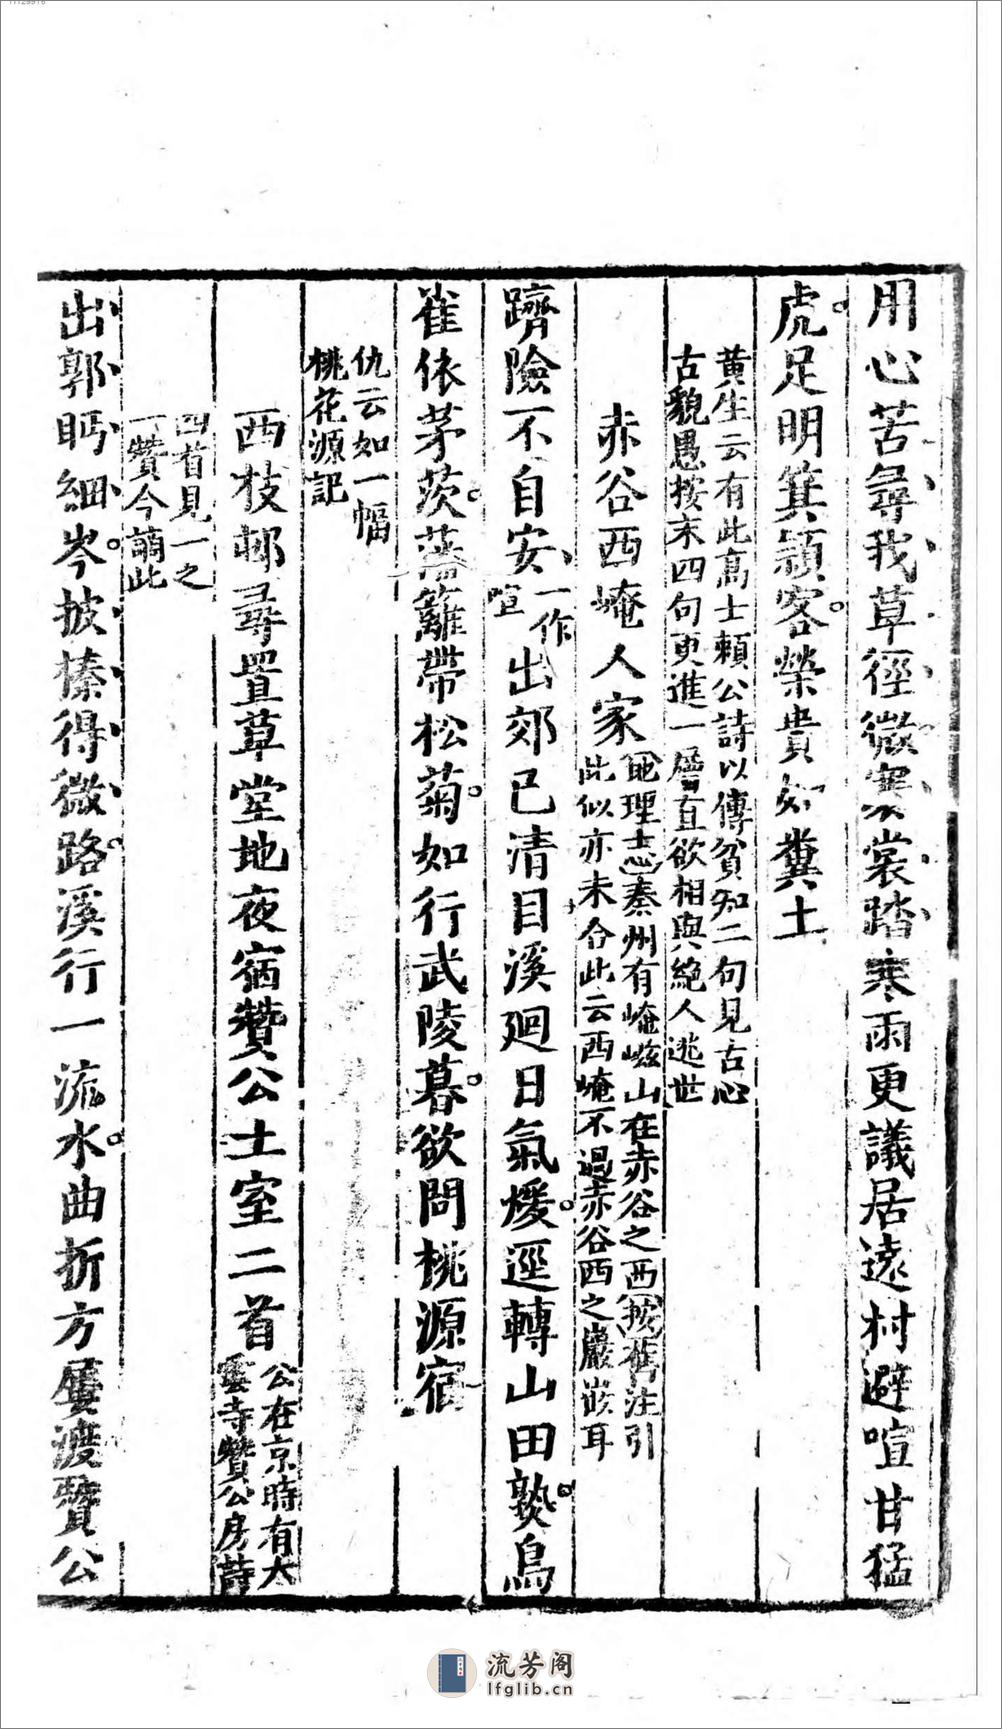 用心苦尋我草徑微褰裳踏寒雨更議居遠村避喧甘猛
虎足明箕潁客榮貴如糞土
黄生云有此高士賴公詩以傳貧知二句見古心
古貌愚按末四句更進一層直欲相與絶人逃世
赤谷西崦人家
地理志秦州有崦嵫山在赤谷之西按舊注引
此似亦未合此云西崦不過赤谷西之巖嵌耳
躋險不自安
一作
喧
出郊已清目溪廻日氣煖逕轉山田熟鳥
雀依茅茨藩籬帶松菊如行武陵暮欲問桃源宿
仇云如一幅
桃花源記
西枝邨尋置草堂地夜宿贊公土室二首
公在京時有大
雲寺贊公房詩
四首見一之
一贊今謫此
出郭眄細岑披榛得微路溪行一流水曲折方屢渡贊公
流芳阁
lfglib.cn